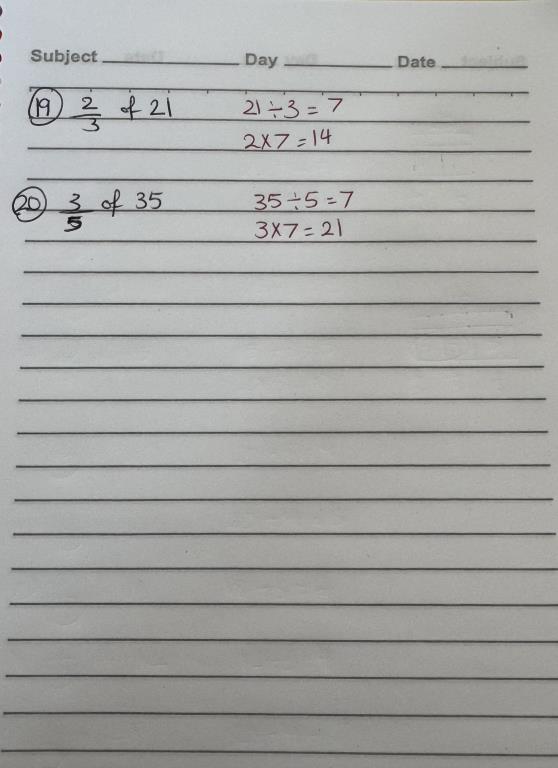 Subject Day Date
19 2/3 of 21 21÷3=7
2×7=14
20 3/5 of 35 35÷5=7
3×7=21